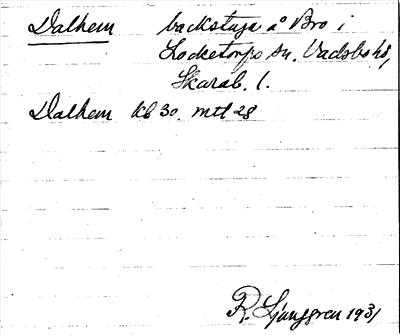 Dalhem backstuga å Bro i
Locketorps sn. Vadsbo hd,
Skarab. l.
Dalhem kb 30. mtl 28
R. Ljunggren 1931